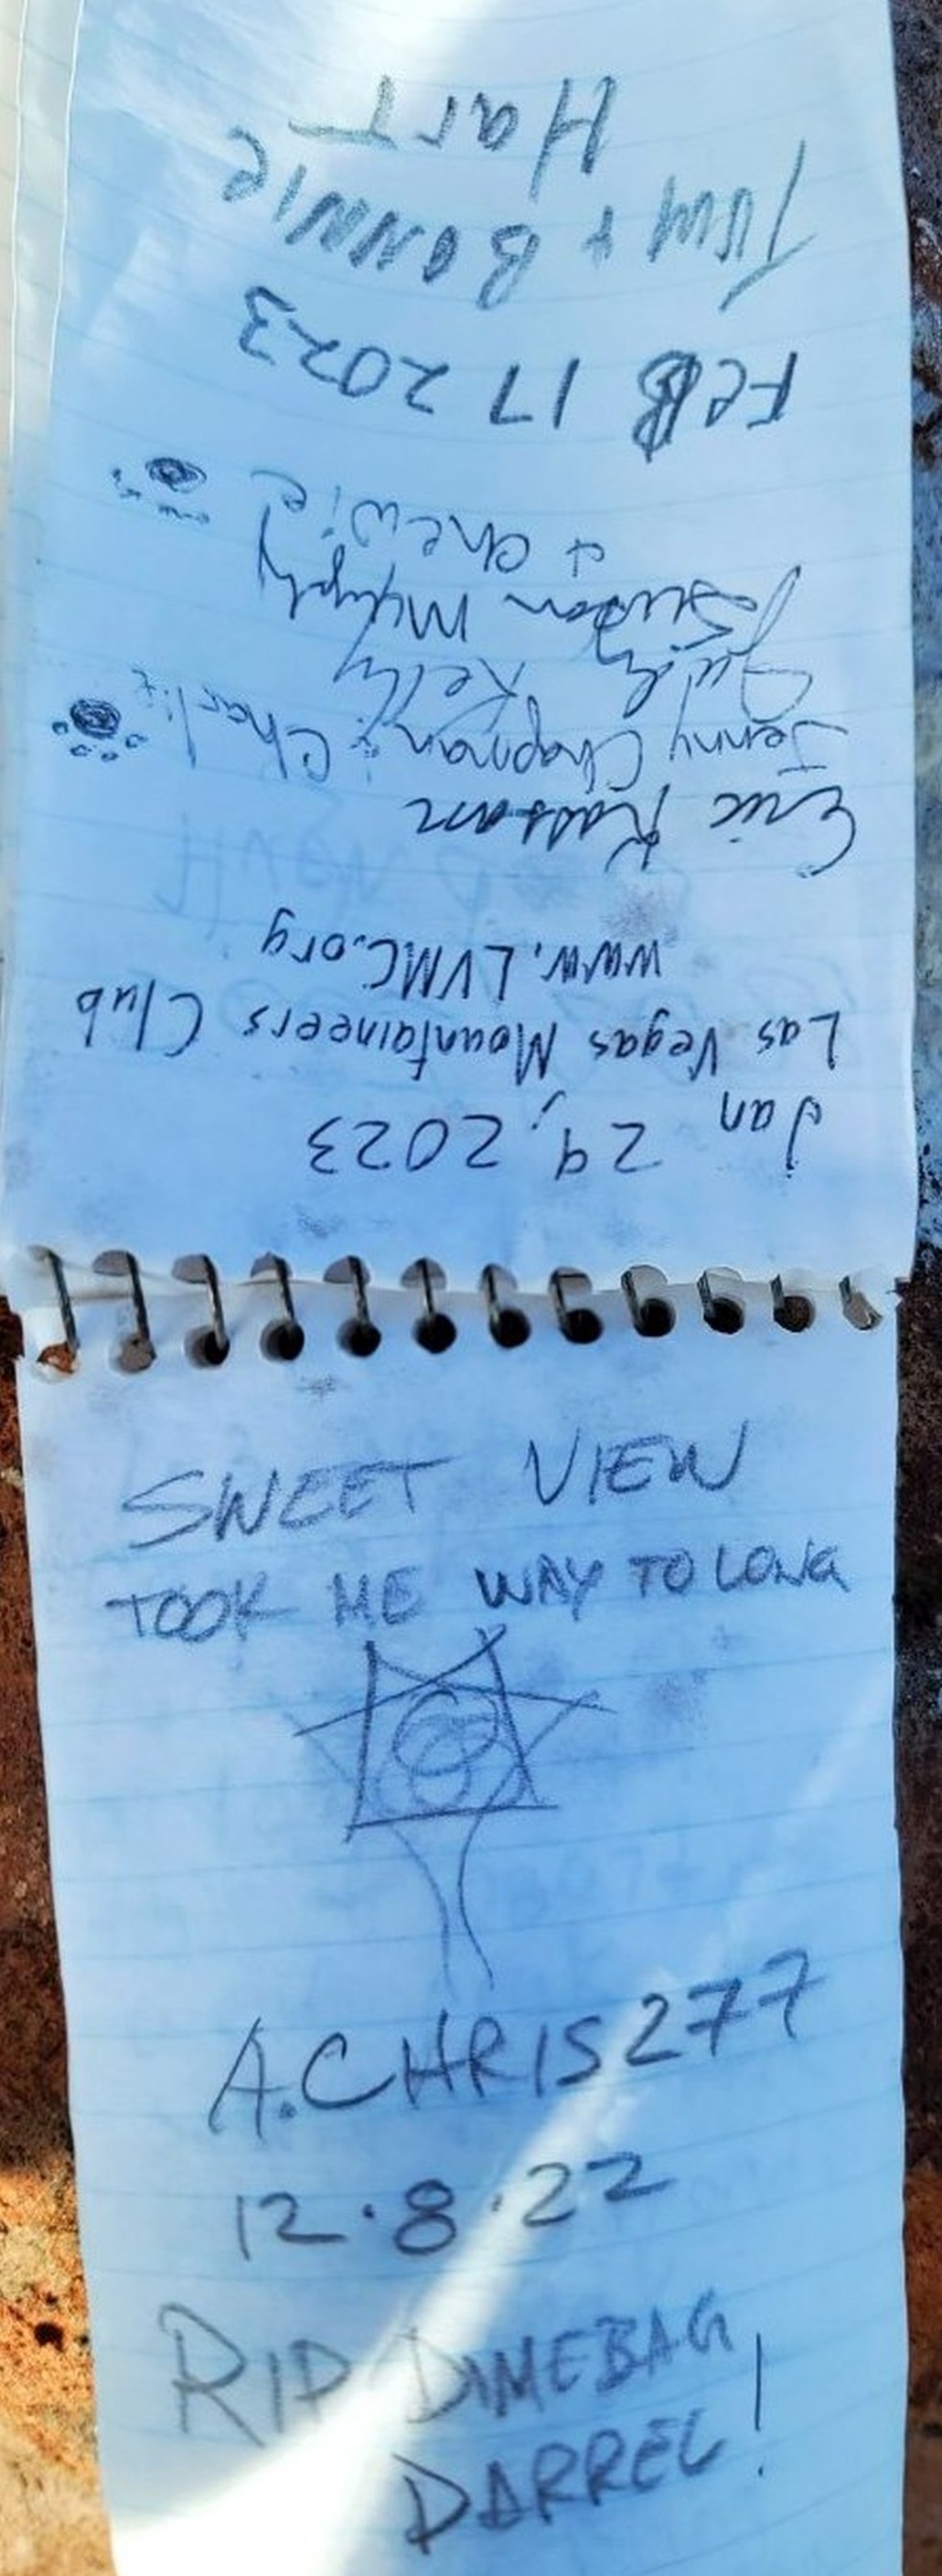 SWEET VIEW
TOOK ME WAY TO LONG
A.CHRIS277
12.8.22
RIP DIMEBAG
DARREL!
Jan 29, 2023
Las Vegas Mountaineers Club
www.LVMC.org
Eric
Jenny Chapman & Charlie
Judy Kelly
Susan Murphy
& Chewie
FEB 17 2023
TOM + BONNIE
HarT